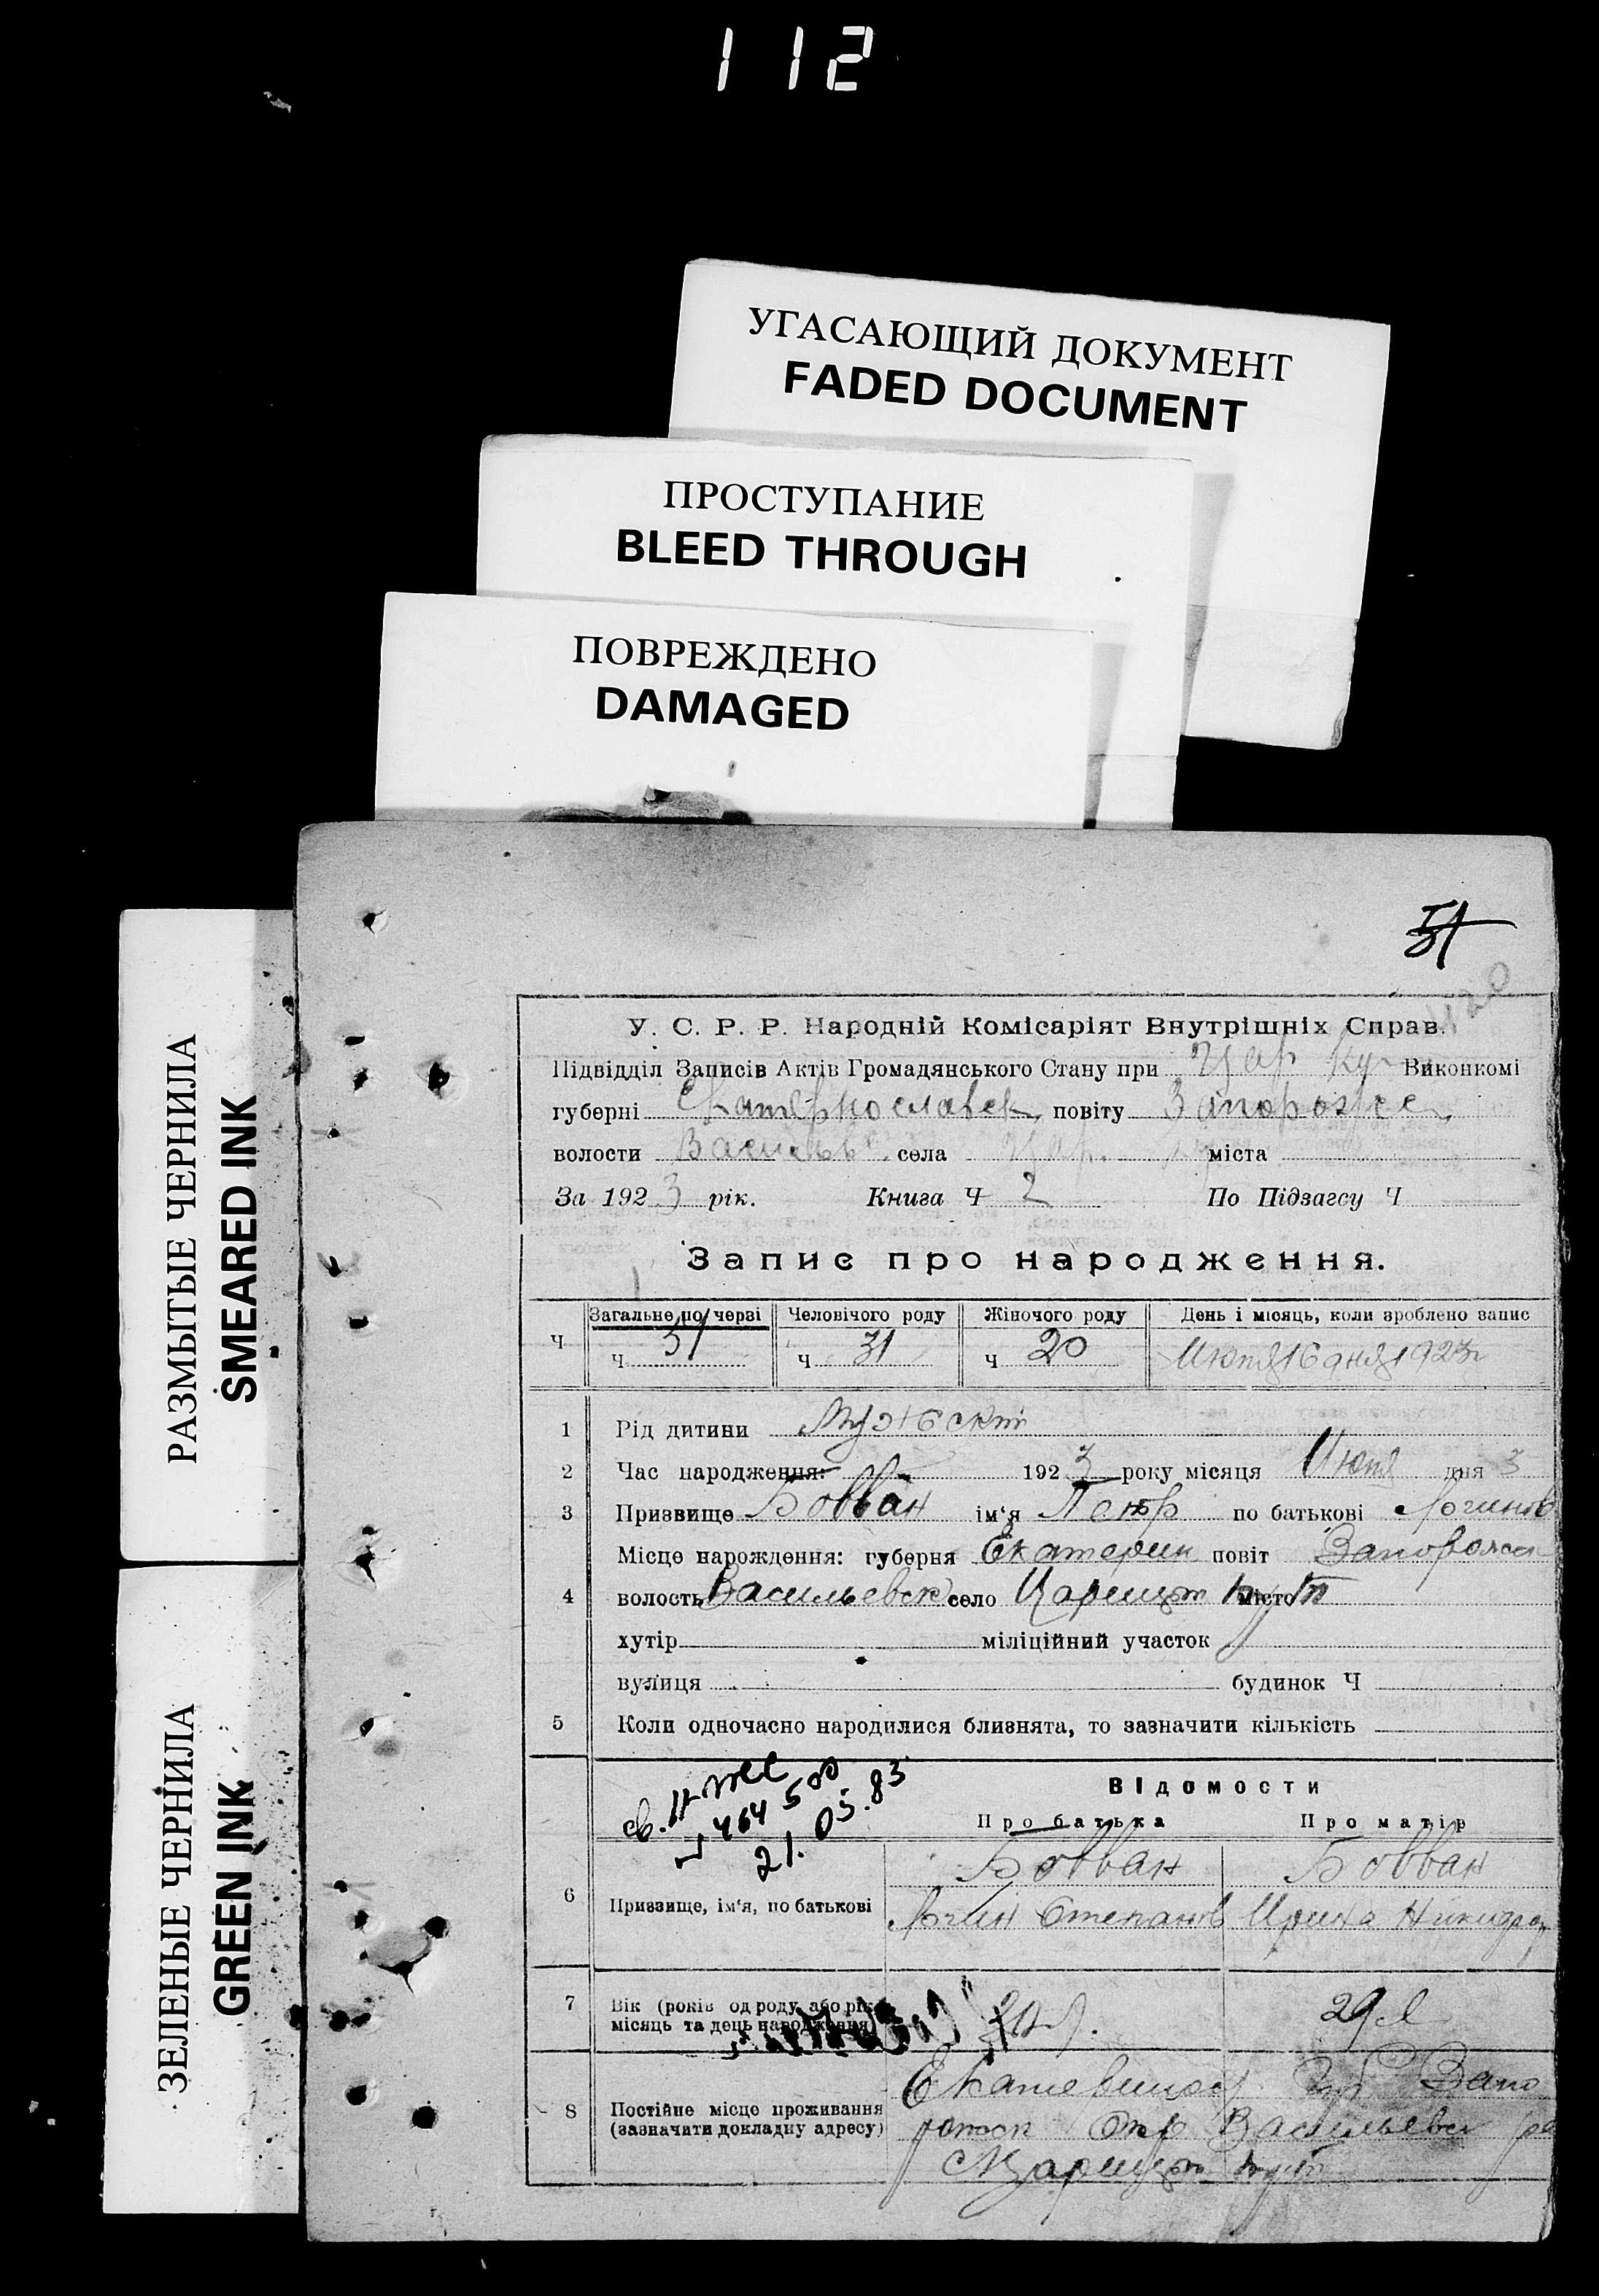 112
УГАСАЮЩИЙ ДОКУМЕНТ
FADED DOCUMENT
ПРОСТУПАНИЕ
BLEED THROUGH
ПОВРЕЖДЕНО
DAMAGED
РАЗМЫТЫЕ ЧЕРНИЛА
SMEARED INK
ЗЕЛЕНЫЕ ЧЕРНИЛА
GREEN INK
51
120
У. С. Р. Р. Народній Комісаріят Внутрішніх Справ.
Підвідділ Записів Актів Громадянського Стану при Цар Кут Виконкомі
губерні Екатеринославск повіту Запорожск
волости Васильев села Цар. міста
За 1923 рік. Книга Ч 2 По Підзагсу Ч
Запис про народження.
Ч Загальне по черзі Человічого роду Жіночого роду День і місяць, коли зроблено запис
Ч 51 Ч 31 Ч 20 Июня 16 дня 1923г
1 Рід дитини Мужской
2 Час народження: 1923 року місяця Июня дня 3
3 Призвище Бовван ім'я Петр по батькові Логинов
Місце нарождення: губерня Екатерин повіт Запорожск
4 волость Васильевск село Царицын Кут місто
хутір міліційний участок
вулиця будинок Ч
5 Коли одночасно народилися близнята, то зазначити кількість
св. II-ЖС
464500
21.05.83
Відомости
Про батька Про матір
Бовван Бовван
6 Призвище, ім'я, по батькові Логин Степанов Ирина Никифор
7 Вік (років од роду або рік місяць та день народження) 29 л
Екатеринос Губ Запо
8 Постійне місце проживання (зазначити докладну адресу) рожск Окр Васильевск ра
Царицын Кут